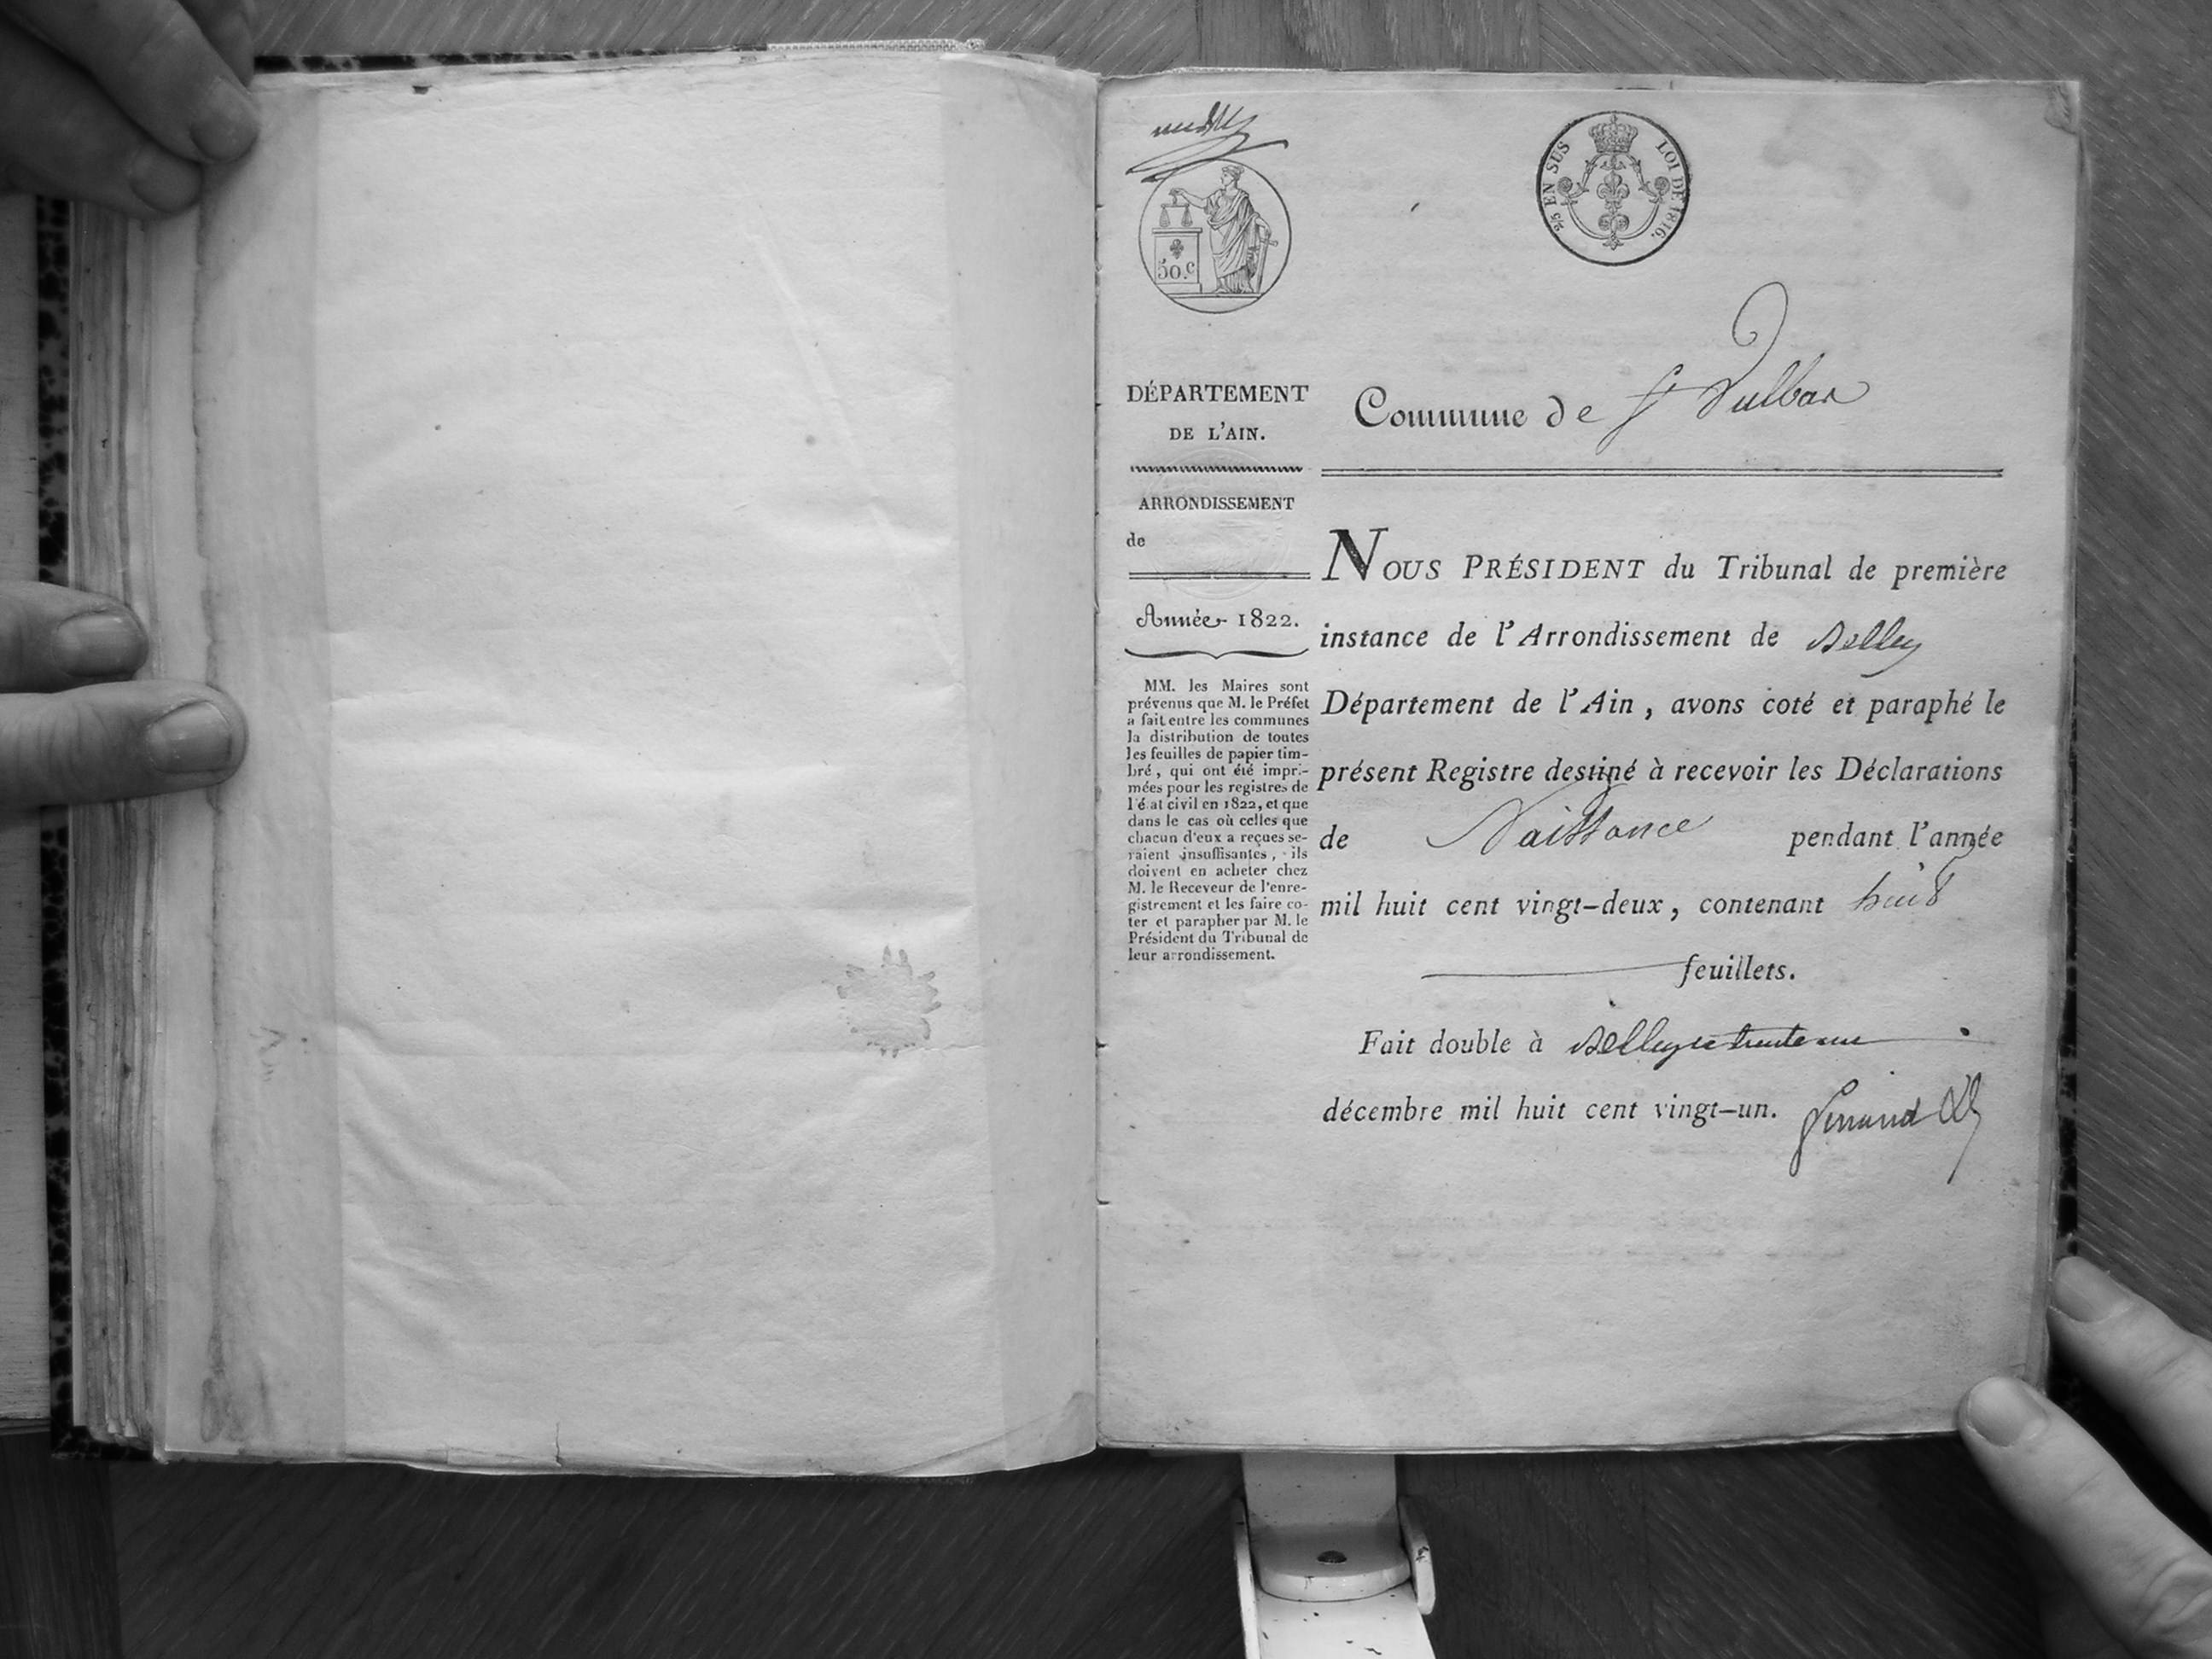 2/5 EN SUS LOI DE 1816.
50.c
DÉPARTEMENT
DE L'AIN.
ARRONDISSEMENT
de
Année 1822.
MM. les Maires sont
prévenus que M. le Préfet
a fait entre les communes
la distribution de toutes
les feuilles de papier tim-
bré, qui ont été impri-
mées pour les registres de
l'état civil en 1822, et que
dans le cas où celles que
chacun d'eux a reçues se-
raient insuffisantes, ils
doivent en acheter chez
M. le Receveur de l'enre-
gistrement et les faire co-
ter et parapher par M. le
Président du Tribunal de
leur arrondissement.
Commune de St Vulbas
NOUS PRÉSIDENT du Tribunal de première
instance de l'Arrondissement de Belley
Département de l'Ain, avons coté et paraphé le
présent Registre destiné à recevoir les Déclarations
de Naissance pendant l'année
mil huit cent vingt-deux, contenant huit
feuillets.
Fait double à Belley le trente un
décembre mil huit cent vingt-un.